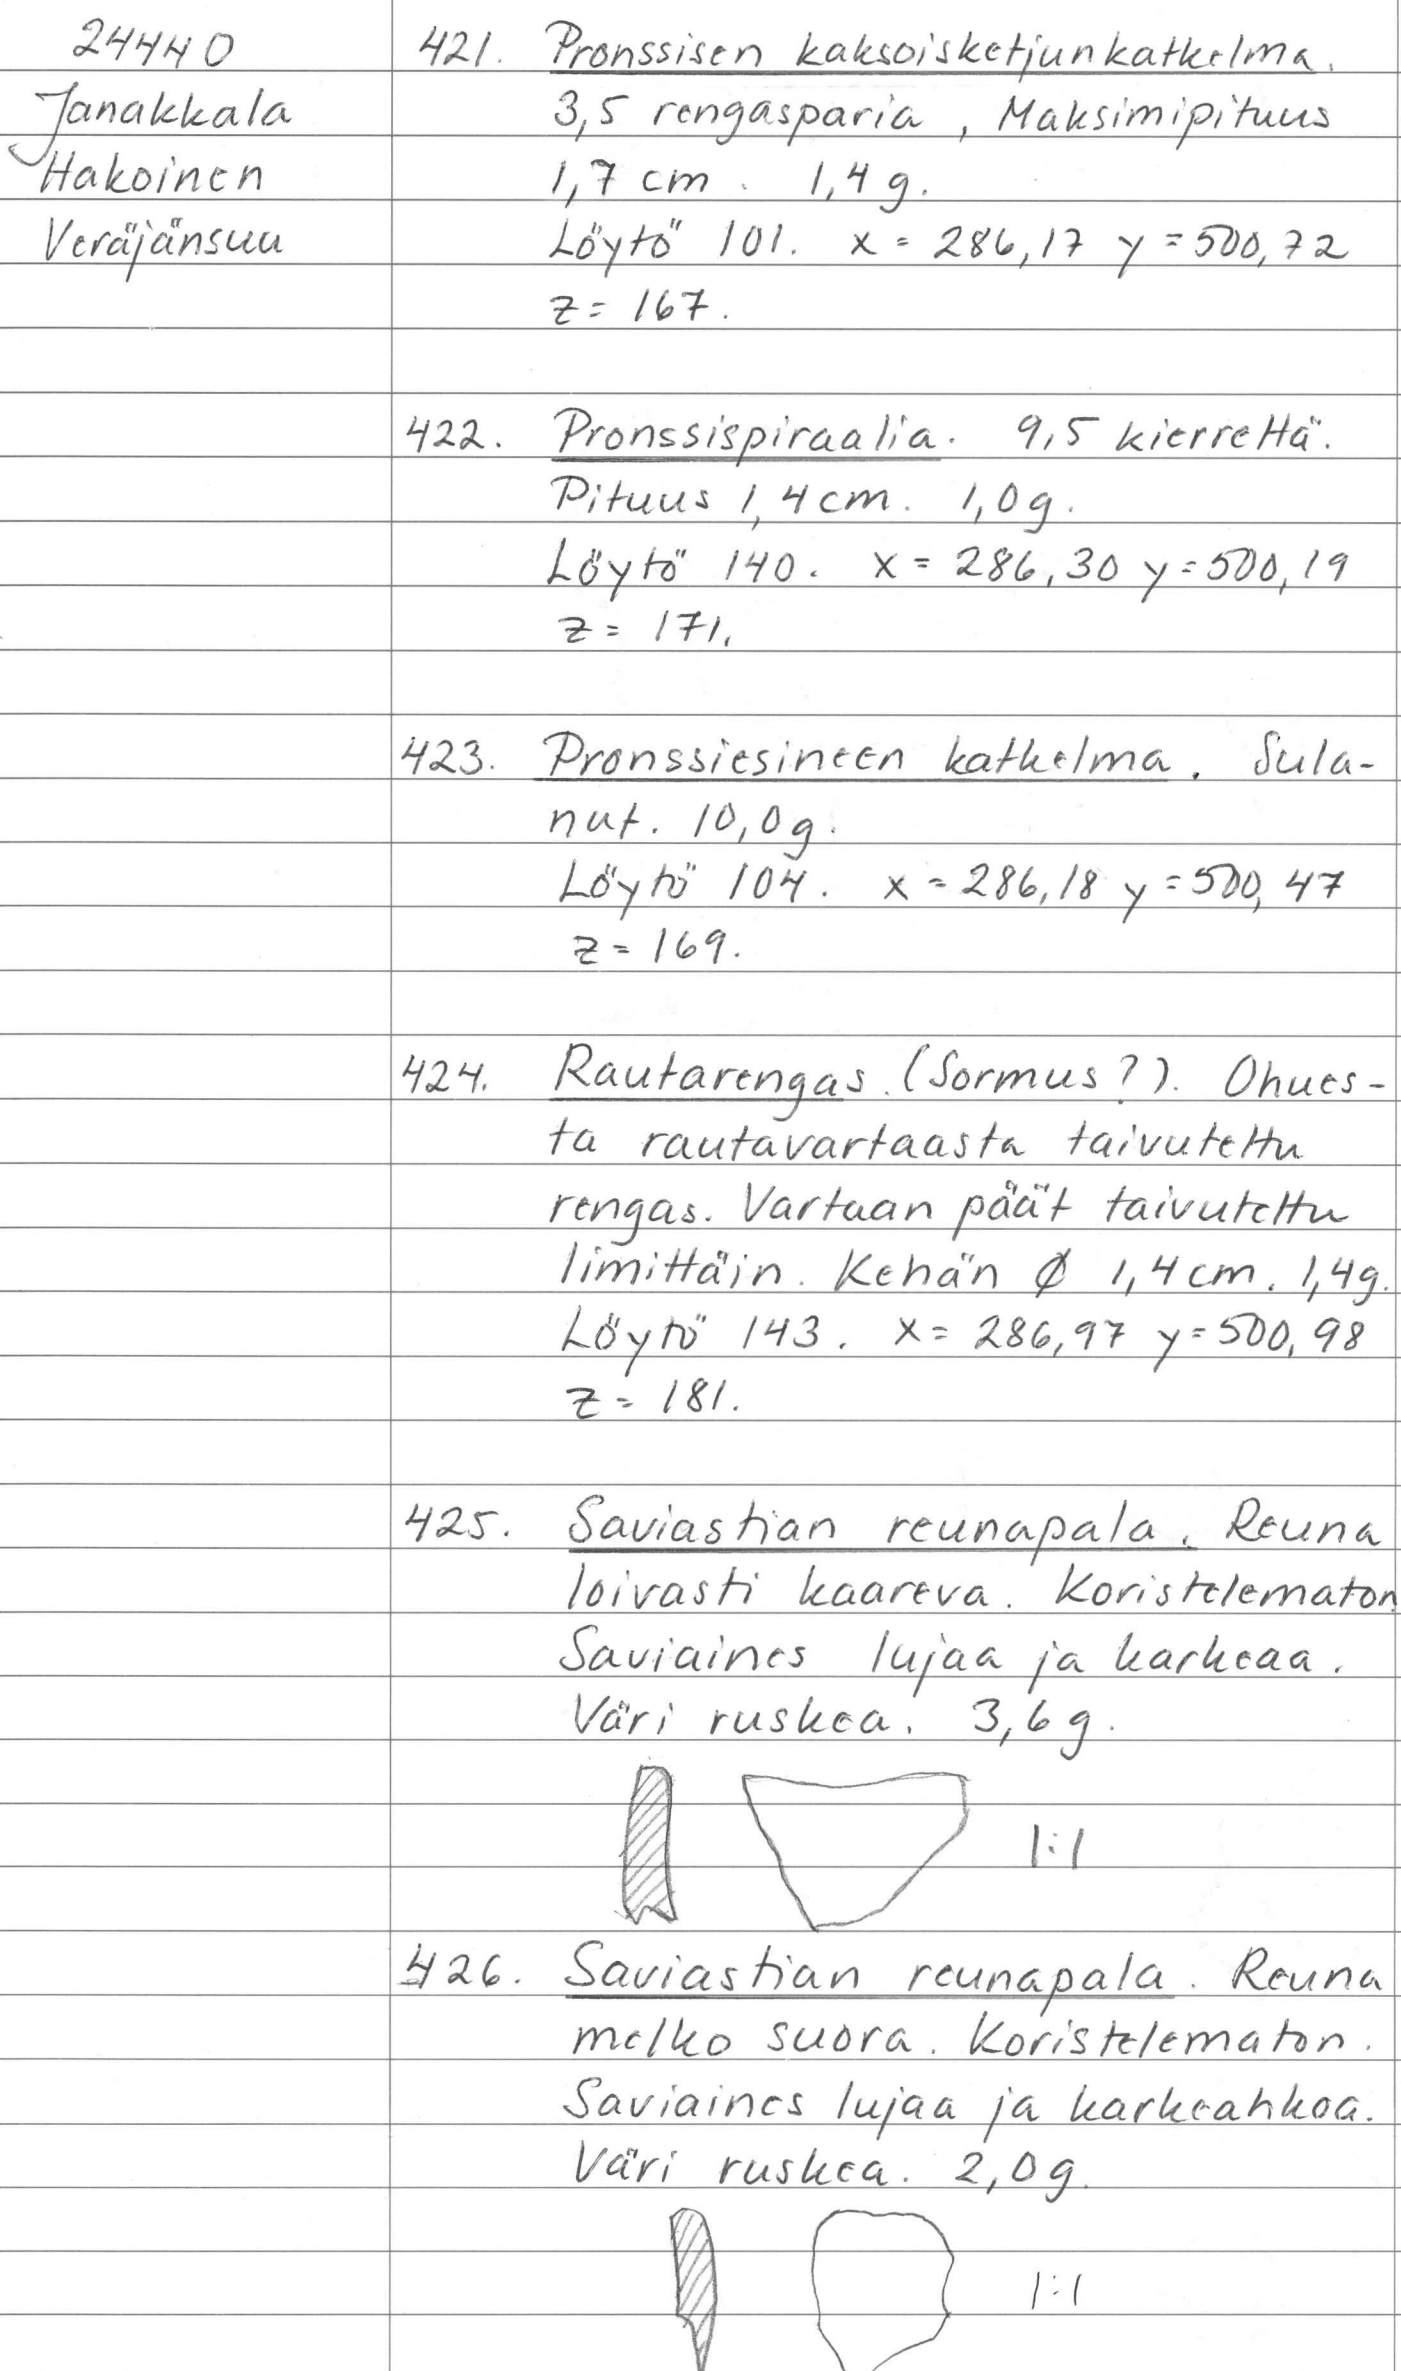 24440
Janakkala
Hakoinen
Veräjänsuu
421. Pronssisen kaksoisketjunkatkelma.
3,5 rengasparia, Maksimipituus
1,7 cm. 1,4 g.
Löytö 101. x = 286,17 y = 500,72
z = 167.
422. Pronssispiraalia. 9,5 kierrettä.
Pituus 1,4 cm. 1,0 g.
Löytö 140. x = 286,30 y = 500,19
z = 171.
423. Pronssiesineen katkelma. Sula-
nut. 10,0 g.
Löytö 104. x = 286,18 y = 500,47
z = 169.
424. Rautarengas. (Sormus?). Ohues-
ta rautavartaasta taivutettu
rengas. Vartaan päät taivutettu
limittäin. Kehän ø 1,4 cm. 1,4 g.
Löytö 143. x = 286,97 y = 500,98
z = 181.
425. Saviastian reunapala. Reuna
loivasti kaareva. Koristelematon.
Saviaines lujaa ja karkeaa.
Väri ruskea. 3,6 g.
1:1
426. Saviastian reunapala. Reuna
melko suora. Koristelematon.
Saviaines lujaa ja karkeahkoa.
Väri ruskea. 2,0 g.
1:1